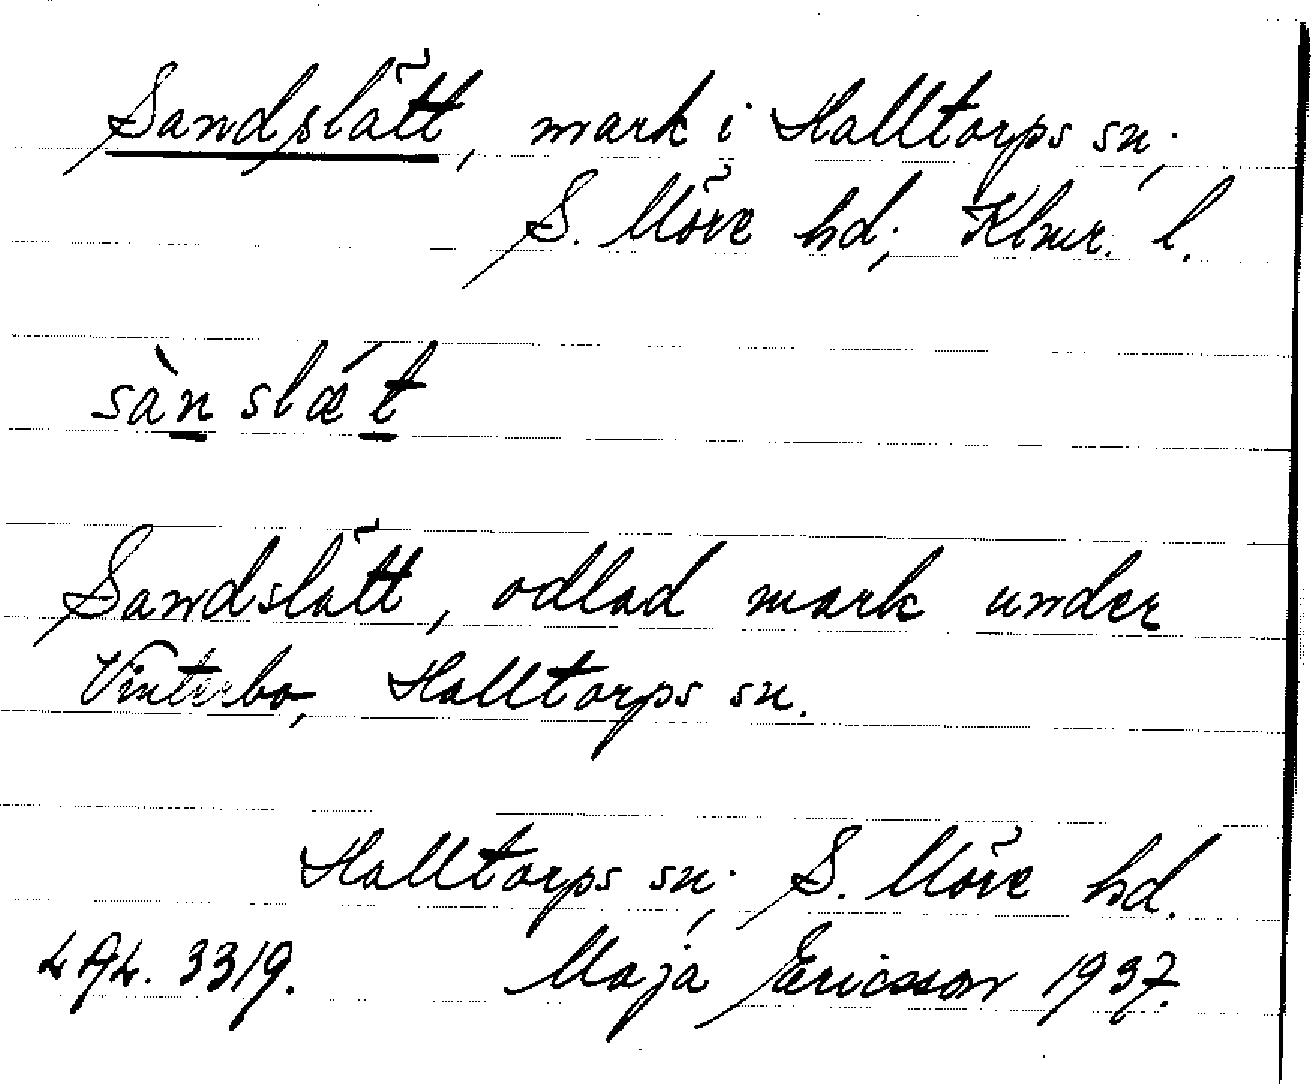 Sandslätt, mark i Halltorps sn;
S. Möre hd; Klmr. l.
sàn slǽt
Sandslätt, odlad mark under
Vinterbo, Halltorps sn.
Halltorps sn; S. Möre hd.
LAL. 3319. Maja Ericsson 1937.